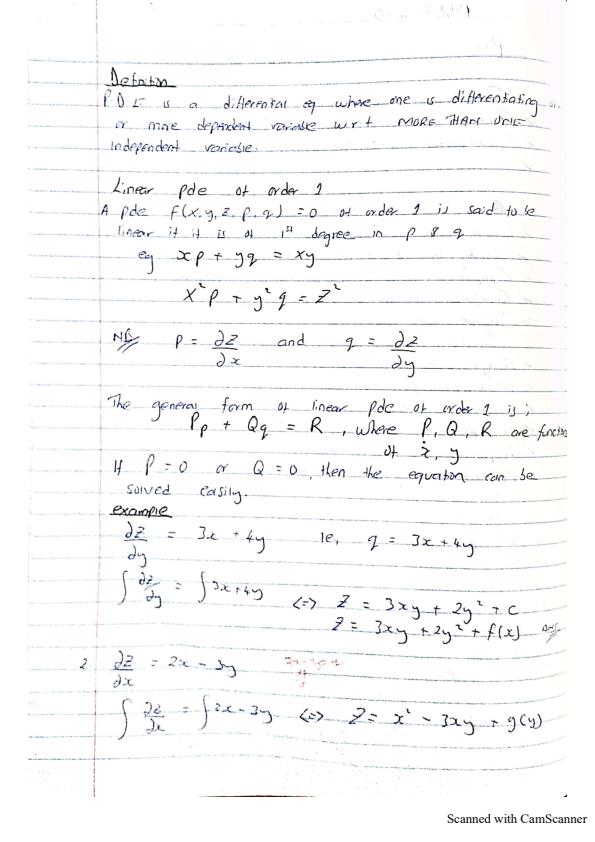 Definition
P D E is a differential eq where one is differentiating
or more dependent variable w r t MORE THAN ONE
independent variable.
Linear pde of order 1
A pde f(x, y, z, p, q) = 0 of order 1 is said to be
linear if it is of 1st degree in p & q
eg xp + yq = xy
x²p + y²q = z²
NB// p = ∂z/∂x and q = ∂z/∂y
The general form of linear pde of order 1 is;
Pp + Qq = R, where P, Q, R are function
of x, y
If P = 0 or Q = 0, then the equation can be
solved easily.
example
∂z/∂y = 3x + 4y ie, q = 3x + 4y
∫ ∂z/∂y = ∫ 3x + 4y <=> z = 3xy + 2y² + c
z = 3xy + 2y² + f(x) Ans//
2 ∂z/∂x = 2x - 3y
∫ ∂z/∂x = ∫ 2x - 3y <=> z = x² - 3xy + g(y)
Scanned with CamScanner